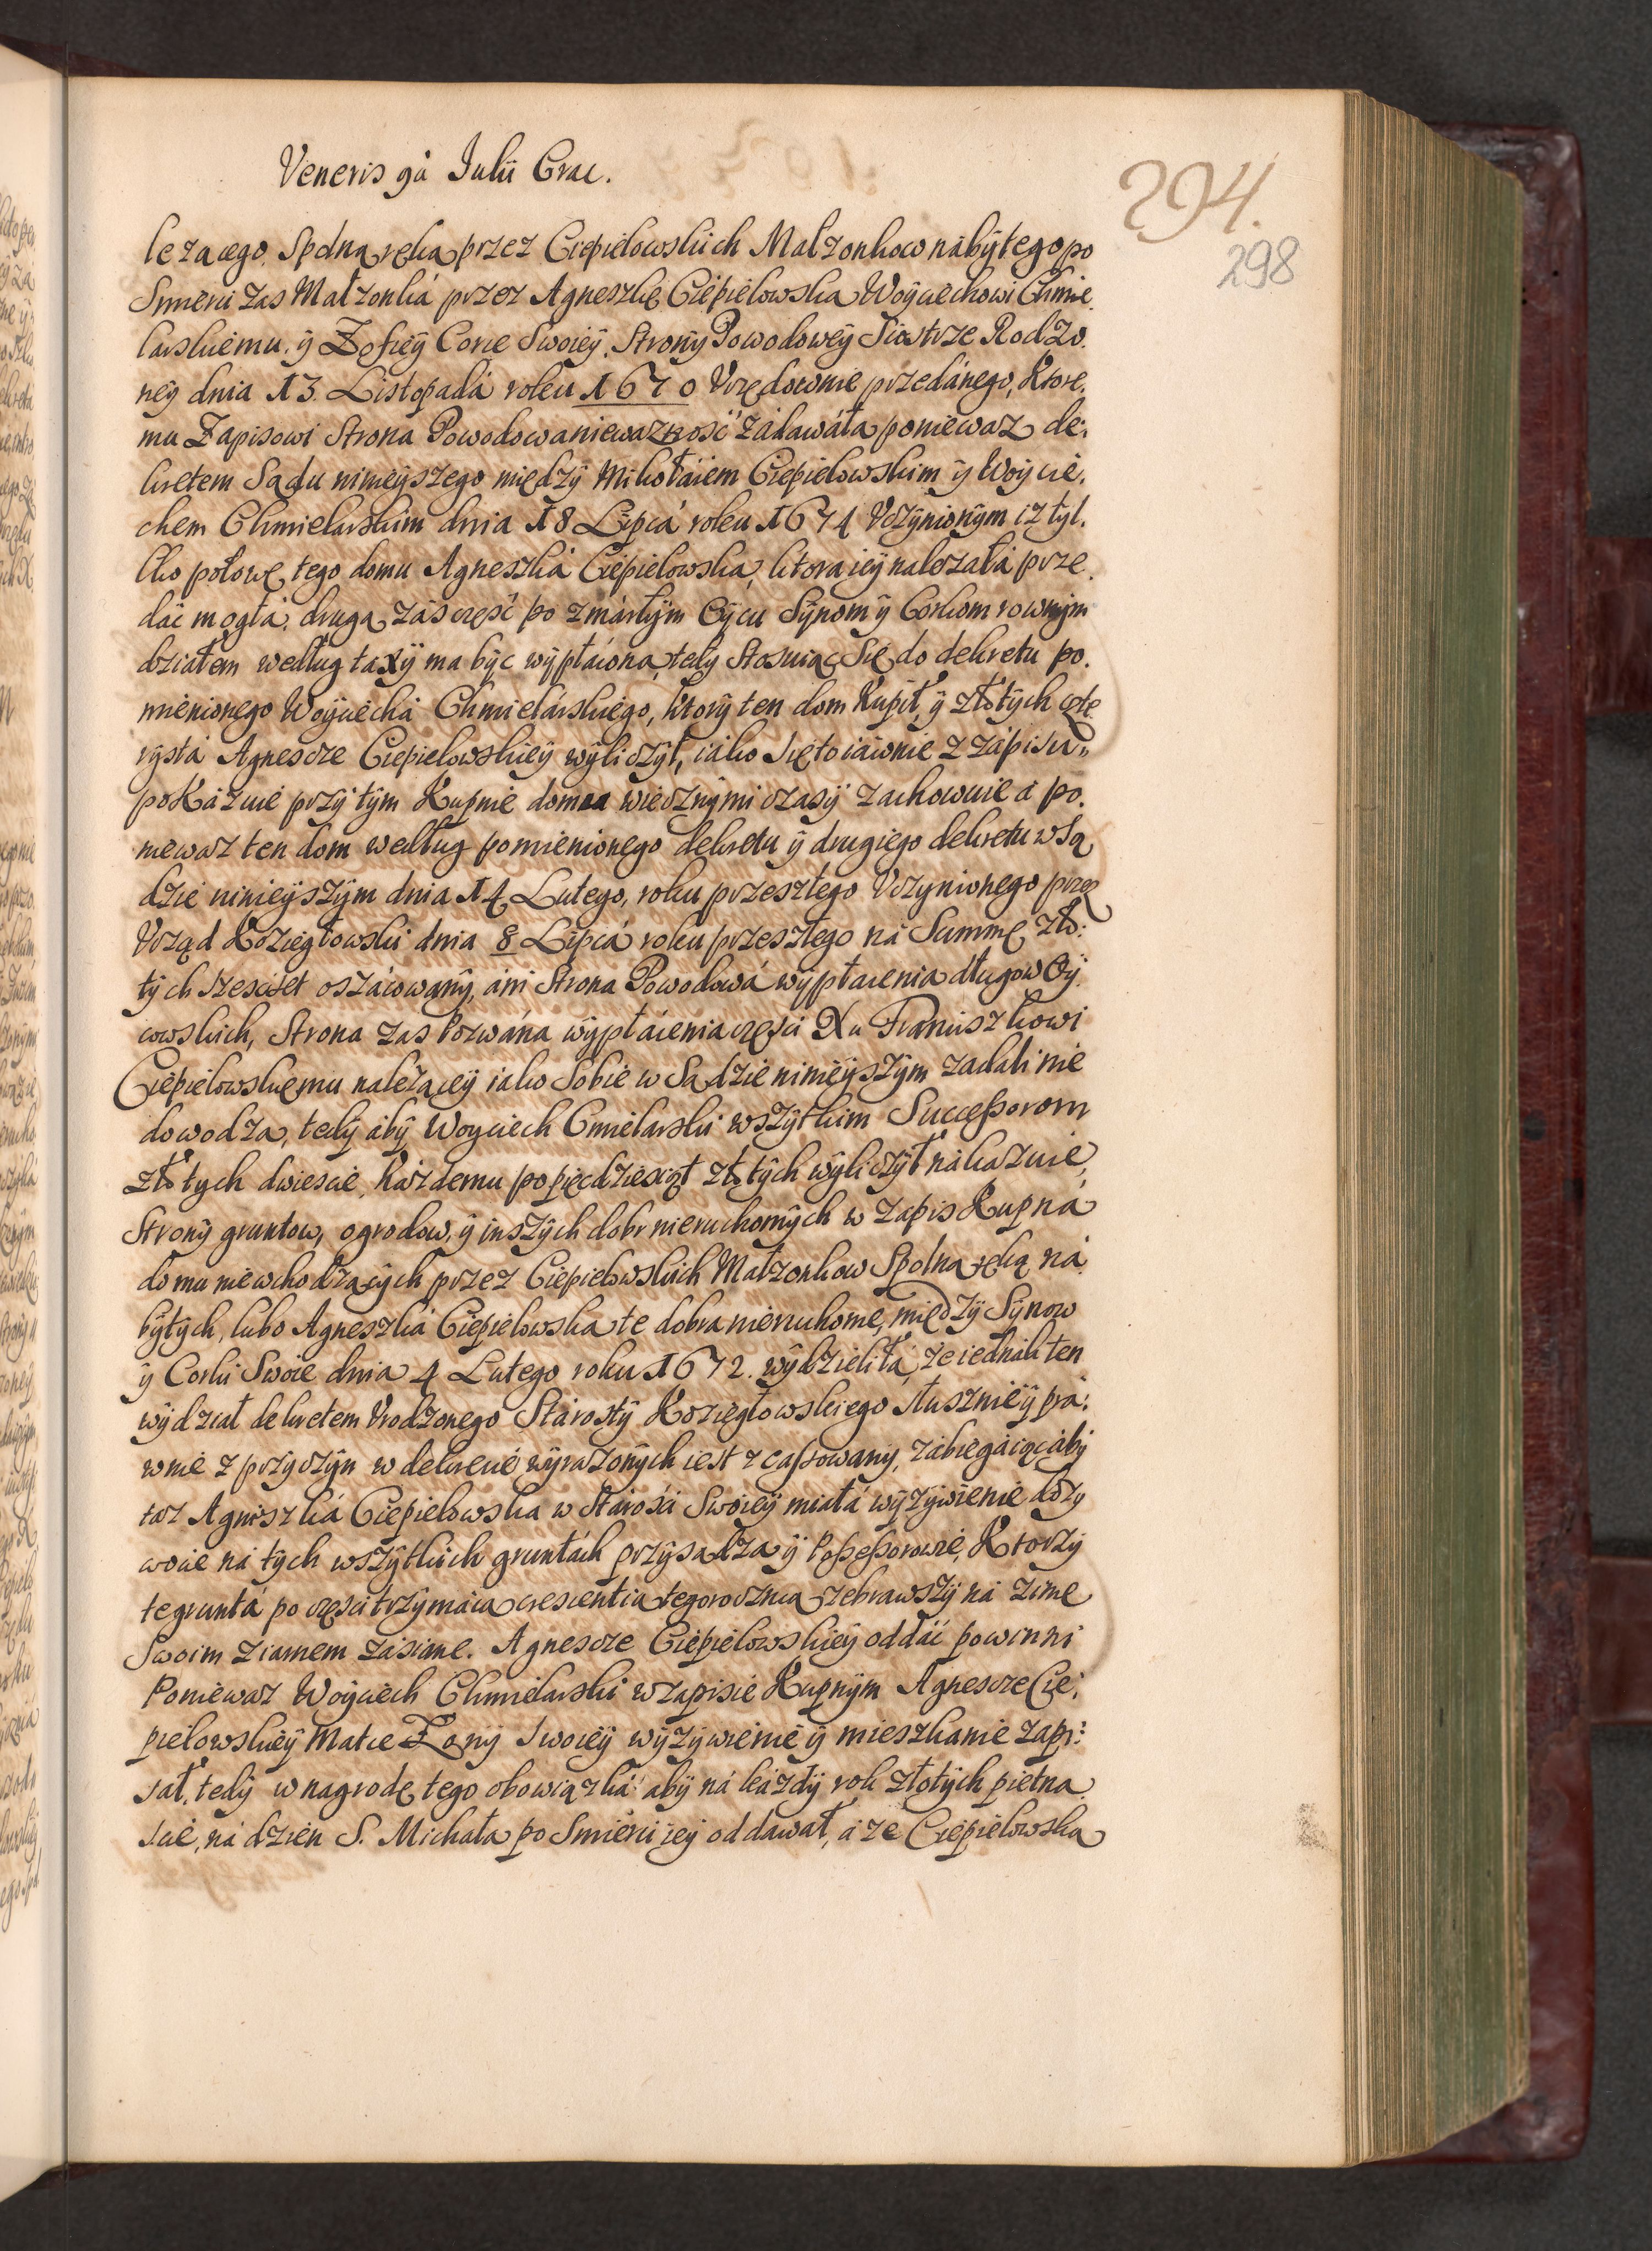 Veneris 9a Julii Crac.
294.
298
lezącego, Spolną ręką przez Ciepielowskich Małżonkow nabytego, po
Smierci zas Małżonká przez Agneszkę Ciepielowską Woyciechowi Chmie.
larskiemu, ÿ Zofiëÿ Corce Swoiëÿ, Stronÿ Powodowëÿ Siostrze Rodzo.
nëÿ dnia 13. Listopadá roku 1670 Vrzędownie przedánego, Ktore.
mu Zapisowi Strona Powodowa niewazność zádawáła poniewaz de:
kretem Sądu ninieÿszego międzÿ Mikołáiem Ciepielowskim ÿ Woÿcie.
chem Chmielarskim dnia 18 Lipcá roku 1674 Vczÿnionÿm iz tÿl.
lko połowę tego domu Agneszká Ciepielowska, ktora ieÿ nalezałá prze.
dác mogłá, drugą zás częsć po zmárłÿm Oÿcu Sÿnom ÿ Corkom rownÿm
działem według taxÿ ma bÿc wÿpłácona, tedÿ Stosuiąc Się do dekretu po.
mienionego Woÿciechá Chmielárskiego, ktorÿ ten dom Kupił, ÿ złotÿch czte
rÿstá Agneszce Ciepielowskieÿ wÿliczÿł, iáko Się to iáwnie z zápisu„
poKázuie przÿ tÿm Kupnie domu wiecznÿmi czasÿ záchowuie á po.
niewaz ten dom według pomienionego dekretu ÿ drugiego dekretu w Są
dzie ninieÿszÿm dnia 14 Lutego, roku przeszłego Vczynionego przez
Vrząd Koziegłowski dnia 8 Lipcá roku przeszłego ná Summę zło:
tÿch szescset oszácowanÿ, áni Strona Powodowá wÿpłacenia długow Oÿ.
cowskich, Strona zas Pozwána wÿpłácenia częsci Xu Franciszkowi
Ciepielowskiemu nalezącëÿ iako Sobie w Sądzie ninieÿszÿm zadali nie
dowodzą, tedÿ ábÿ Woyciech Cmielarski wszÿtkim Successorom
złotych dwiescie, kázdemu po pięcdziesiąt złotÿch wÿliczÿł nákazuie,
Stronÿ gruntow, ogrodow, ÿ inszÿch dobr nieruchomÿch w Zapis Kupná
domu niewchodzącÿch przez Ciepielowskich Małzonkow Spolną ręką ná
bÿtÿch, lubo Agneszká Ciepielowska te dobra nieruchome, międzÿ Sÿnow
ÿ Corki Swoie dnia 4 Lutego roku 1672. wÿdzieliłá, ze iednák ten
wÿdział dekretem Vrodzonego Stárostÿ Koziegłowskiego słusznie ÿ prá:
wnie z przÿczÿn w dekrecie wÿrazonÿch iest zcassowanÿ, zábiegáiąc ábÿ
táz Agniszká Ciepielowska w Stárości Swoiëÿ miałá wÿzÿwienie dozÿ
wocie ná tÿch wszÿtkich gruntách przÿsądza ÿ Possessorowie, Ktorzÿ
te gruntá po częsci trzÿmáią crescentią tegoroczną zebrawszÿ ná zimę
Swoim ziarnem zásiane. Agneszce Ciepielowskiëÿ oddáć powinni
Poniewaz Woÿciech Chmielarski w zapisie Kupnÿm Agneszce Cie:
pielowskiëÿ Matce Zonÿ Swoiëÿ wÿzÿwienie ÿ mieszkanie zapi:
sał, tedÿ w nagrodę tego obowiązká ábÿ ná kázdÿ rok złotÿch piętna
scie, ná dzien S. Michała po Smierci ieÿ oddawał, á ze Ciepielowska